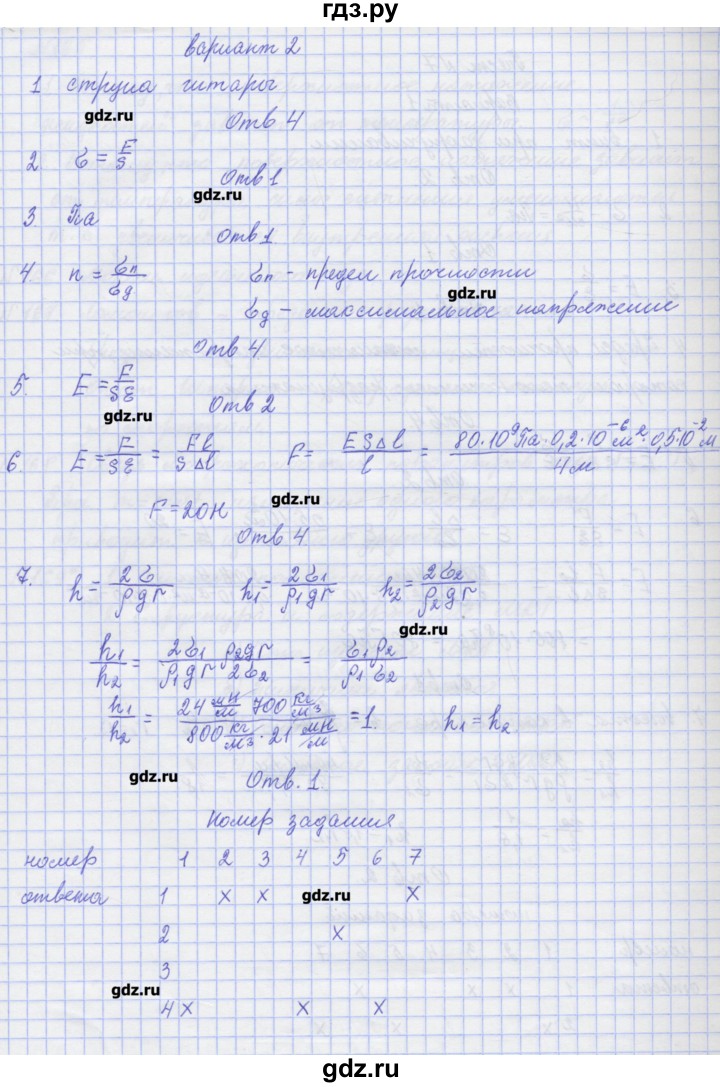 гдз.ру
Вариант 2
1 струна гитары
gdz.ru
Отв 4
2 σ = F/S
Отв 1
gdz.ru
3 Па
Отв 1
4. n = σп/σд σп - предел прочности
gdz.ru
σд - максимальное напряжение
Отв 4
5. E = F/Sε
gdz.ru
Отв 2
6 E = F/Sε = Fl/SΔl F = ESΔl/l = 80·10⁹Па·0,2·10⁻⁶м²·0,5·10⁻²м/4м
gdz.ru
F = 20Н
Отв 4
7. h = 2σ/ρgr h₁ = 2σ₁/ρ₁gr h₂ = 2σ₂/ρ₂gr
gdz.ru
h₁/h₂ = 2σ₁ ρ₂gr/ρ₁gr 2σ₂ = σ₁ρ₂/ρ₁σ₂
h₁/h₂ = 24 мН/м 700 кг/м³ / 800 кг/м³ · 21 мН/м = 1. h₁ = h₂
gdz.ru
Отв. 1.
Номер задания
номер 1 2 3 4 5 6 7
ответа 1 x x gdz.ru x
2 x
3
gdz.ru
4 x x x
gdz.ru